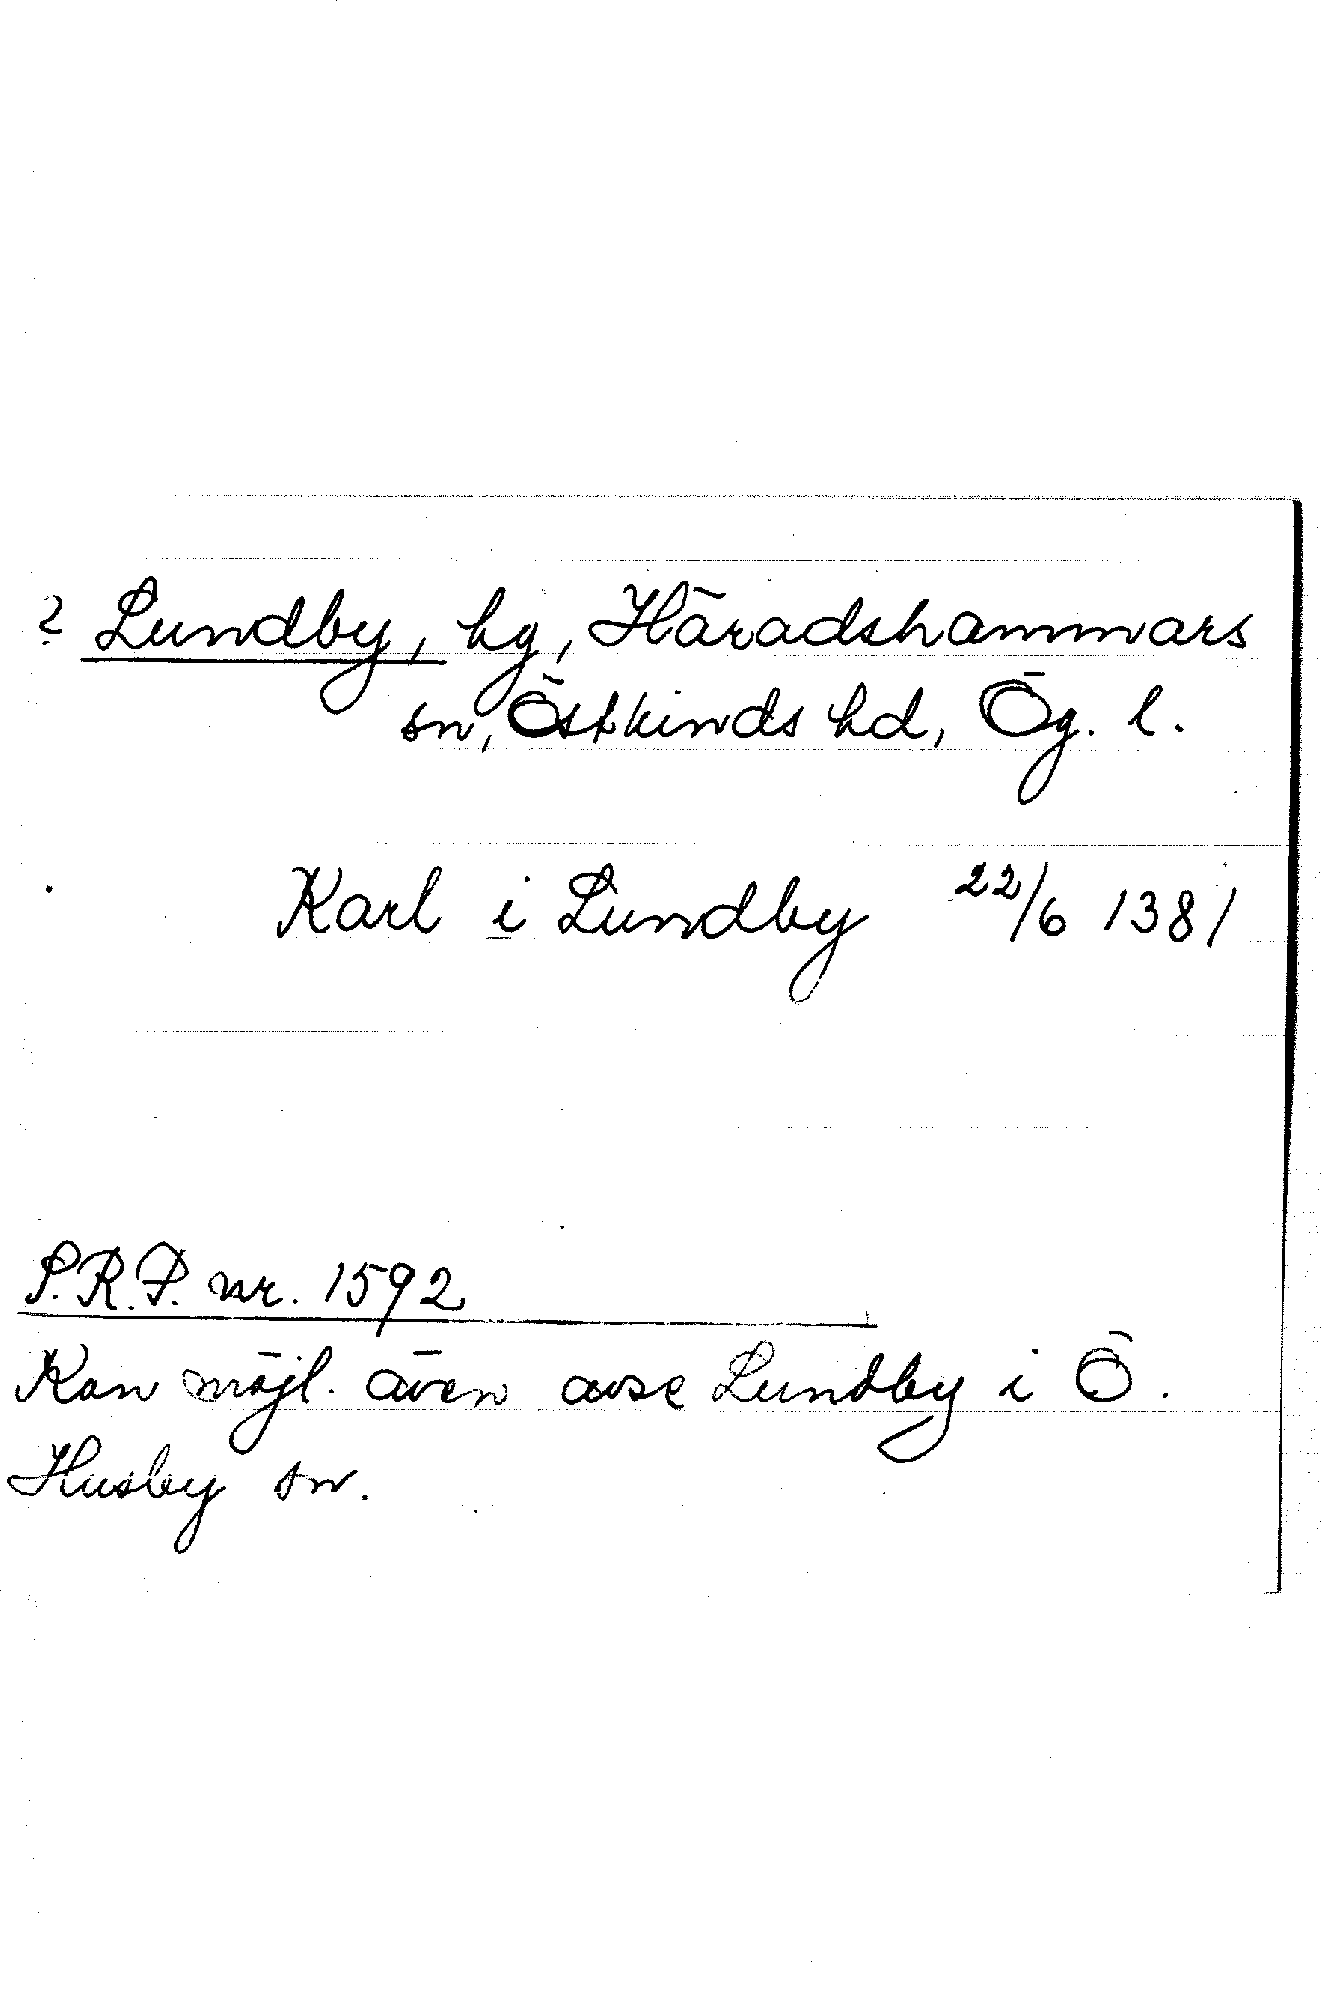 ? Lundby, hg, Häradshammars
sn, Östkinds hd, Ög. l.
Karl i Lundby 22/6 1381
S.R.P. nr. 1592
Kan möjl. även avse Lundby i Ö.
Husby sn.